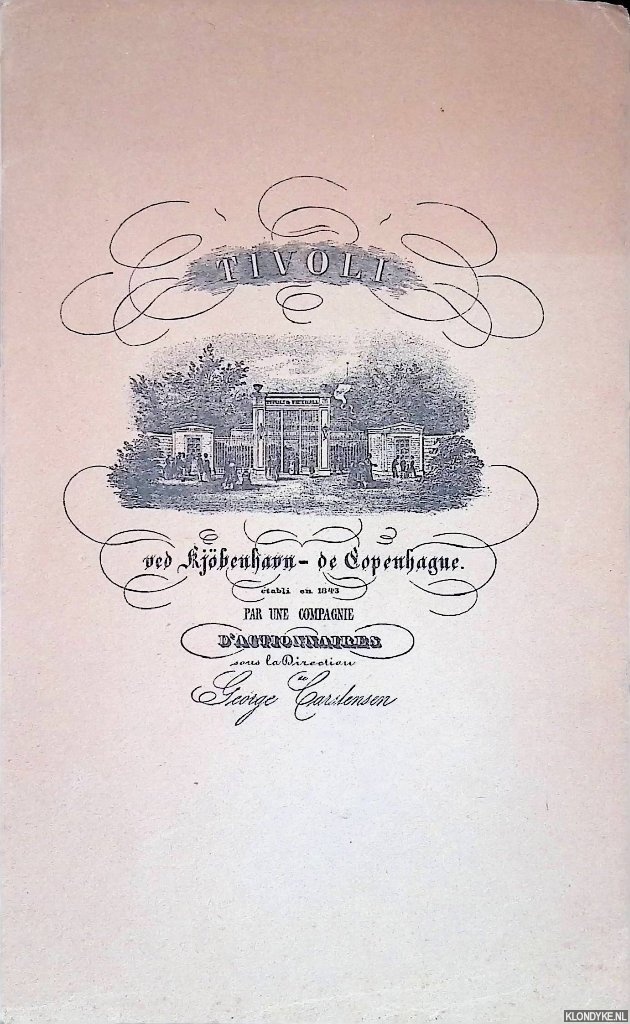 TIVOLI
TIVOLI & VAUXHALL
ved Kjöbenhavn - de Copenhague.
établi en 1843
PAR UNE COMPAGNIE
D'ACTIONNAIRES
sous la Direction
de
George Carstensen
KLONDYKE.NL